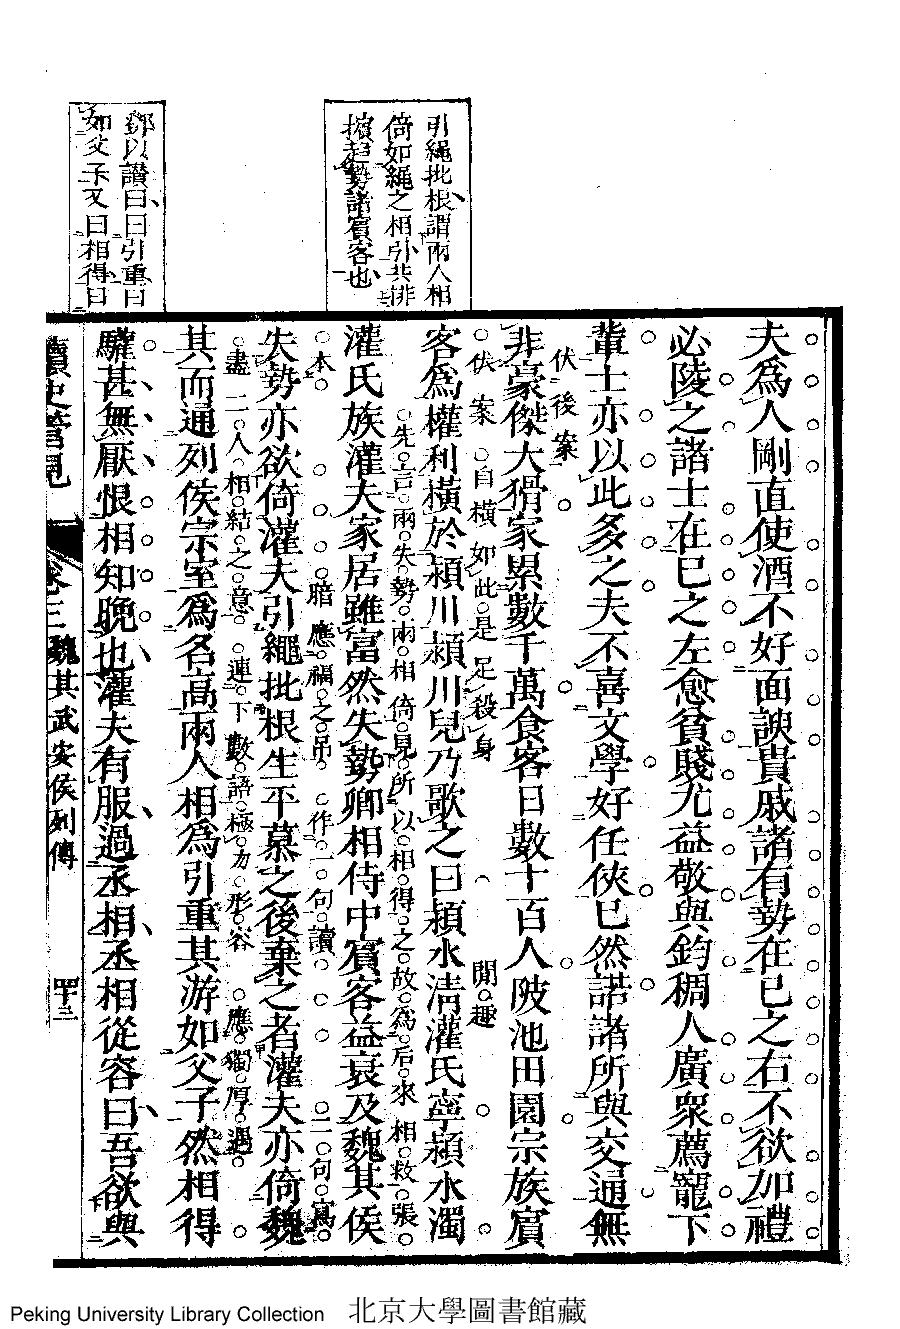 引繩批根謂兩人相
倚如繩之相引共排
擯趨勢諸賓客也
鄧以讚曰曰引重曰
如父子又曰相得曰
夫爲人剛直使酒不好面諛貴戚諸有勢在己之右不欲加禮
必陵之諸士在已之左愈貧賤尤益敬與鈞稠人廣衆薦寵下
輩士亦以此多之夫不喜文學好任俠已然諾諸所與交通無
伏後案
非豪傑大猾家累數千萬食客日數十百人陂池田園宗族賓
伏案 自橫如此是足殺身 閒趣
客爲權利橫於潁川潁川兒乃歌之曰潁水清灌氏寧潁水濁
先言兩失勢兩相倚見所以相得之故爲后來相救張
灌氏族灌夫家居雖富然失勢卿相侍中賓客益衰及魏其侯
本 暗應福之吊 作一句讀 二句寫
失勢亦欲倚灌夫引繩批根生平慕之後棄之者灌夫亦倚魏
盡二人相結之意 連下數語極力形容 應獨厚遇
其而通列侯宗室爲名高兩人相爲引重其游如父子然相得
驩甚無厭恨相知晚也灌夫有服過丞相丞相從容曰吾欲與
讀史管見 卷三 魏其武安侯列傳